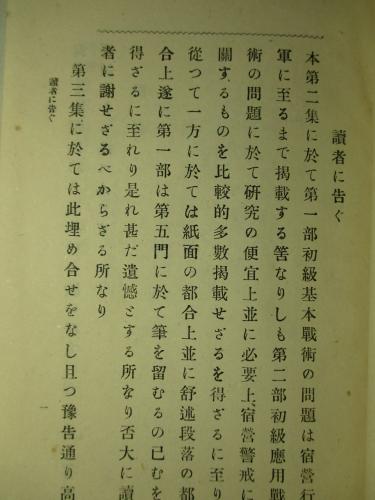 讀者に告ぐ
本第二集に於て第一部初級基本戰術の問題は宿營行
軍に至るまで掲載する筈なりしも第二部初級應用戰
術の問題に於て研究の便宜上並に必要上、宿營警戒に
關するものを比較的多數掲載せざるを得ざるに至り
從つて一方に於ては紙面の都合上並に舒述段落の都
合上遂に第一部は第五門に於て筆を留むるの已むを
得ざるに至れり是れ甚だ遺憾とする所なり否大に讀
者に謝せざるべからざる所なり
第三集に於ては此埋め合せをなし且つ豫告通り高
讀者に告ぐ
一